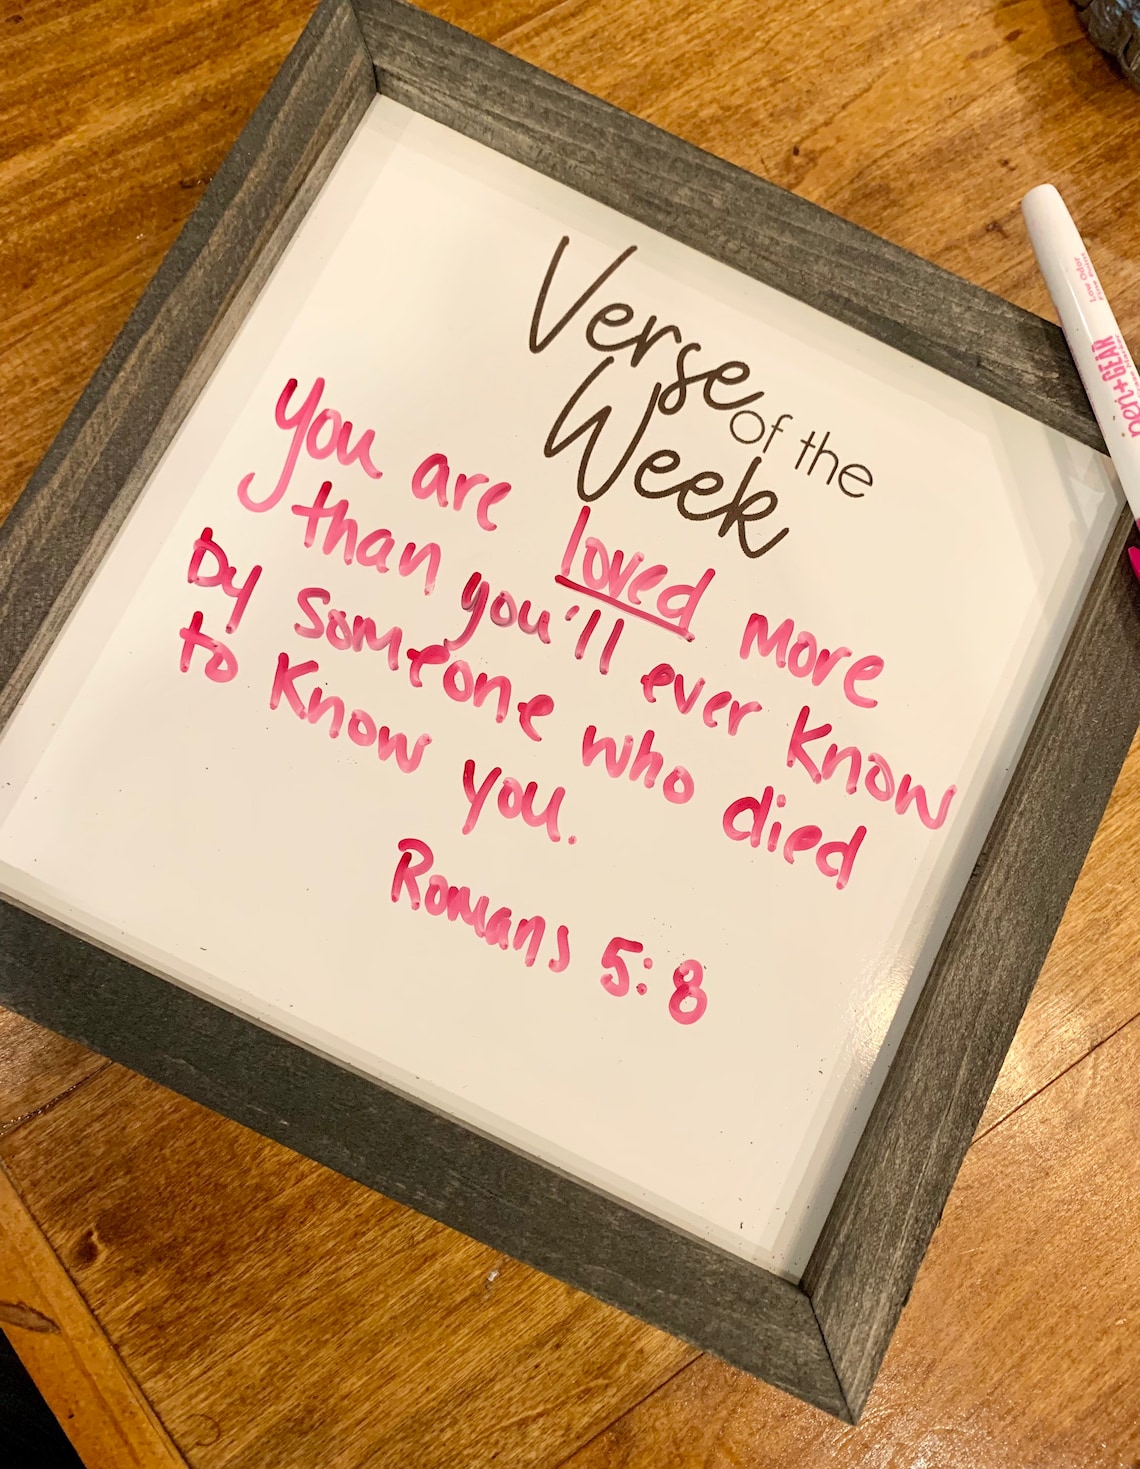 Verse of the
Week
You are loved more
than you'll ever know
by someone who died
to know you.
Romans 5:8
pen+GEAR
Low Odor